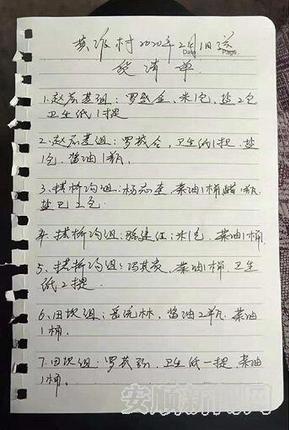 村2020年2月1日送
货清单
1.赵家基组:罗 米1包,盐2包
卫生纸1提
2.赵家基组:罗 卫生纸1提,盐
1包,酱油1瓶,
3.拱桥沟组:杨 菜油1桶醋1瓶
盐巴2包
4.拱桥沟组:陈建红:米1包,菜油1桶
5.拱桥沟组: 菜油1桶 卫生
纸2提
6.田坎组: 林,酱油2瓶,菜油
1桶.
7.田坎组:罗 卫生纸一提,菜油
1桶.
安顺新闻网